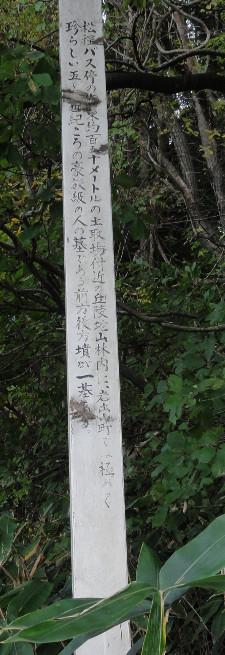 松﨑バス停の東約百メートルの土取場付近の丘陵地山林内に岩出山町では極めて
珍らしい五~世紀ころの豪族級の人の墓である前方後方墳が一基ある